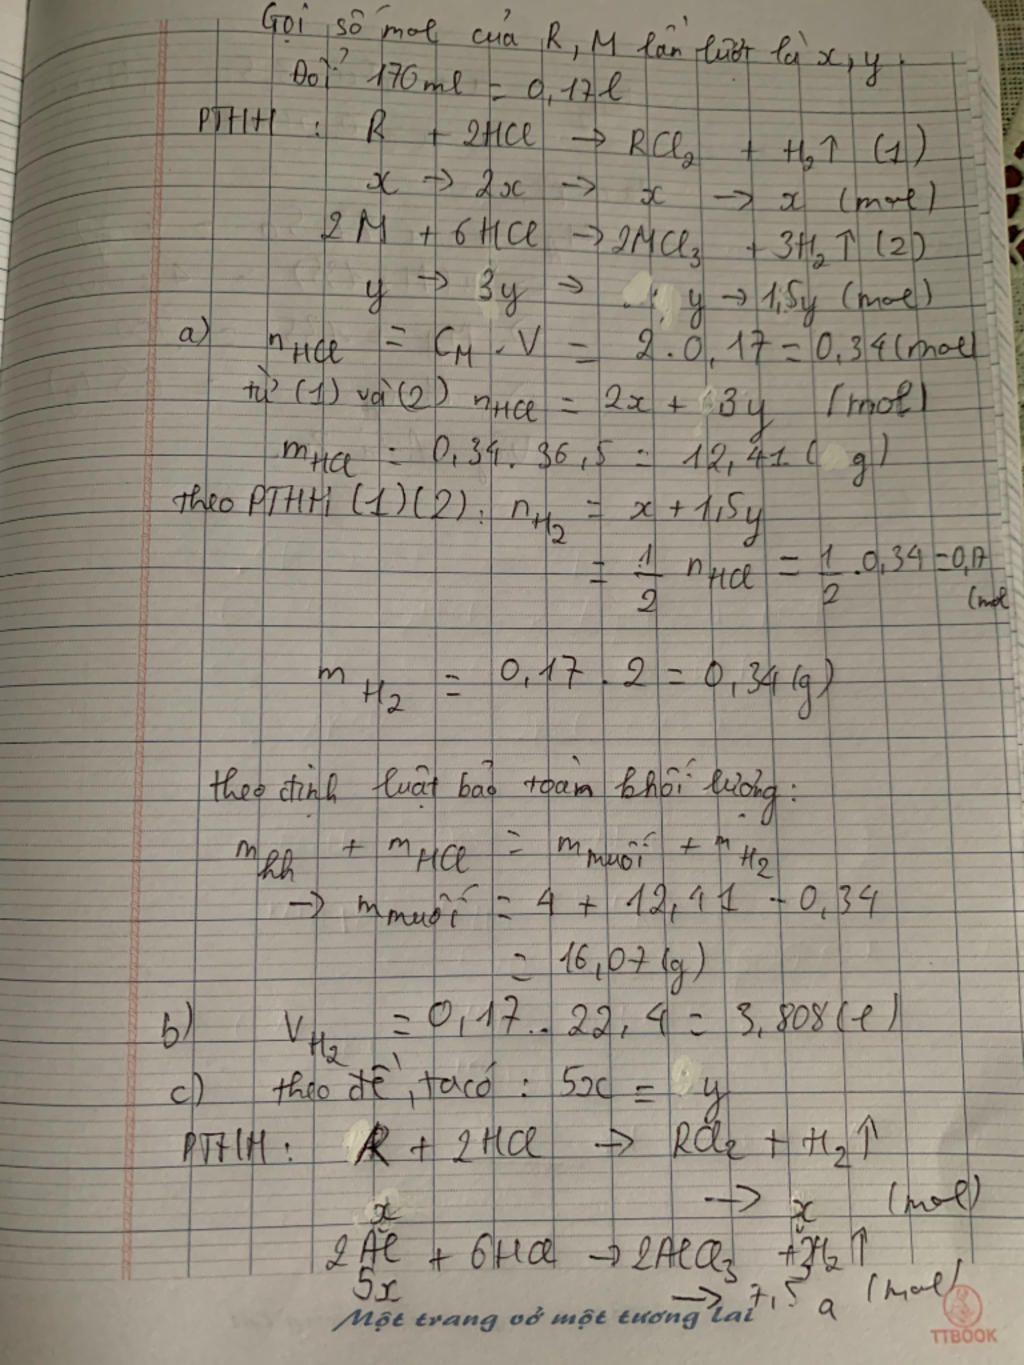 Gọi số mol của R, M lần lượt là x, y.
Đổi 170ml = 0,17l
PTHH : R + 2HCl → RCl₂ + H₂↑ (1)
x → 2x → x → x (mol)
2M + 6HCl → 2MCl₃ + 3H₂↑ (2)
y → 3y → y → 1,5y (mol)
a) nHCl = CM . V = 2 . 0,17 = 0,34 (mol)
từ (1) và (2) nHCl = 2x + 3y (mol)
mHCl = 0,34 . 36,5 = 12,41 (g)
theo PTHH (1)(2) : nH₂ = x + 1,5y
= 1/2 nHCl = 1/2 . 0,34 = 0,17
(mol
mH₂ = 0,17 . 2 = 0,34 (g)
theo định luật bảo toàn khối lượng :
mhh + mHCl = mmuối + mH₂
→ mmuối = 4 + 12,41 - 0,34
= 16,07 (g)
b) VH₂ = 0,17 . 22,4 = 3,808 (l)
c) theo đề, ta có : 5x = y
PTHH : R + 2HCl → RCl₂ + H₂↑
x → x (mol)
2Al + 6HCl → 2AlCl₃ + 3H₂↑
5x → 7,5a (mol)
Một trang vở một tương lai
TTBOOK